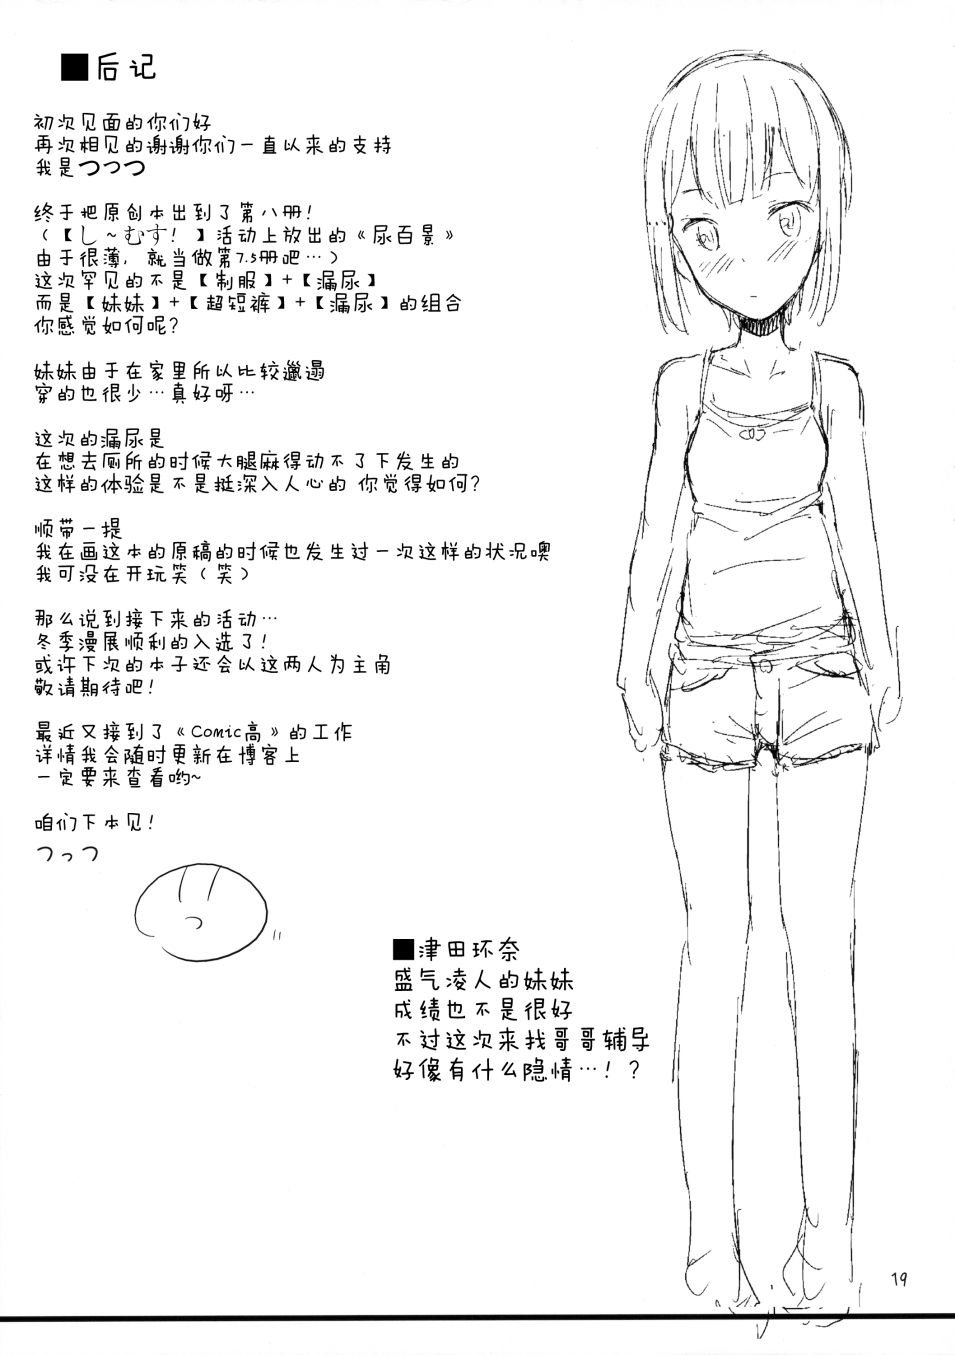 ■后记
初次见面的你们好
再次相见的谢谢你们一直以来的支持
我是つつつ
终于把原创本出到了第八册！
（【し～むす！】活动上放出的《尿百景》
由于很薄，就当做第7.5册吧…）
这次罕见的不是【制服】+【漏尿】
而是【妹妹】+【超短裤】+【漏尿】的组合
你感觉如何呢？
妹妹由于在家里所以比较邋遢
穿的也很少…真好呀…
这次的漏尿是
在想去厕所的时候大腿麻得动不了下发生的
这样的体验是不是挺深入人心的 你觉得如何？
顺带一提
我在画这本的原稿的时候也发生过一次这样的状况噢
我可没在开玩笑（笑）
那么说到接下来的活动…
冬季漫展顺利的入选了！
或许下次的本子还会以这两人为主角
敬请期待吧！
最近又接到了《Comic高》的工作
详情我会随时更新在博客上
一定要来查看哟~
咱们下本见！
つっつ
■津田环奈
盛气凌人的妹妹
成绩也不是很好
不过这次来找哥哥辅导
好像有什么隐情…！？
19